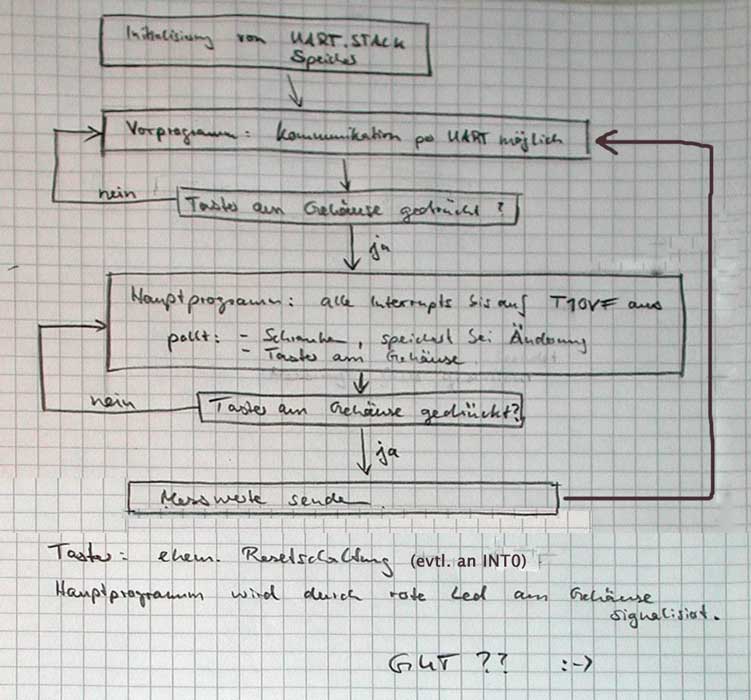 Initialisierung von UART, STACK
Speicher
Vorprogramm: Kommunikation per UART möglich
nein
Taster am Gehäuse gedrückt?
ja
Hauptprogramm: alle Interrupts bis auf T1OVF aus
pollt: - Schranken, speichert bei Änderung
- Taster am Gehäuse
nein
Taster am Gehäuse gedrückt?
ja
Messwerte senden
Taster: ehem. Resetschaltung (evtl. an INT0)
Hauptprogramm wird durch rote Led am Gehäuse
signalisiert.
GUT ?? :->